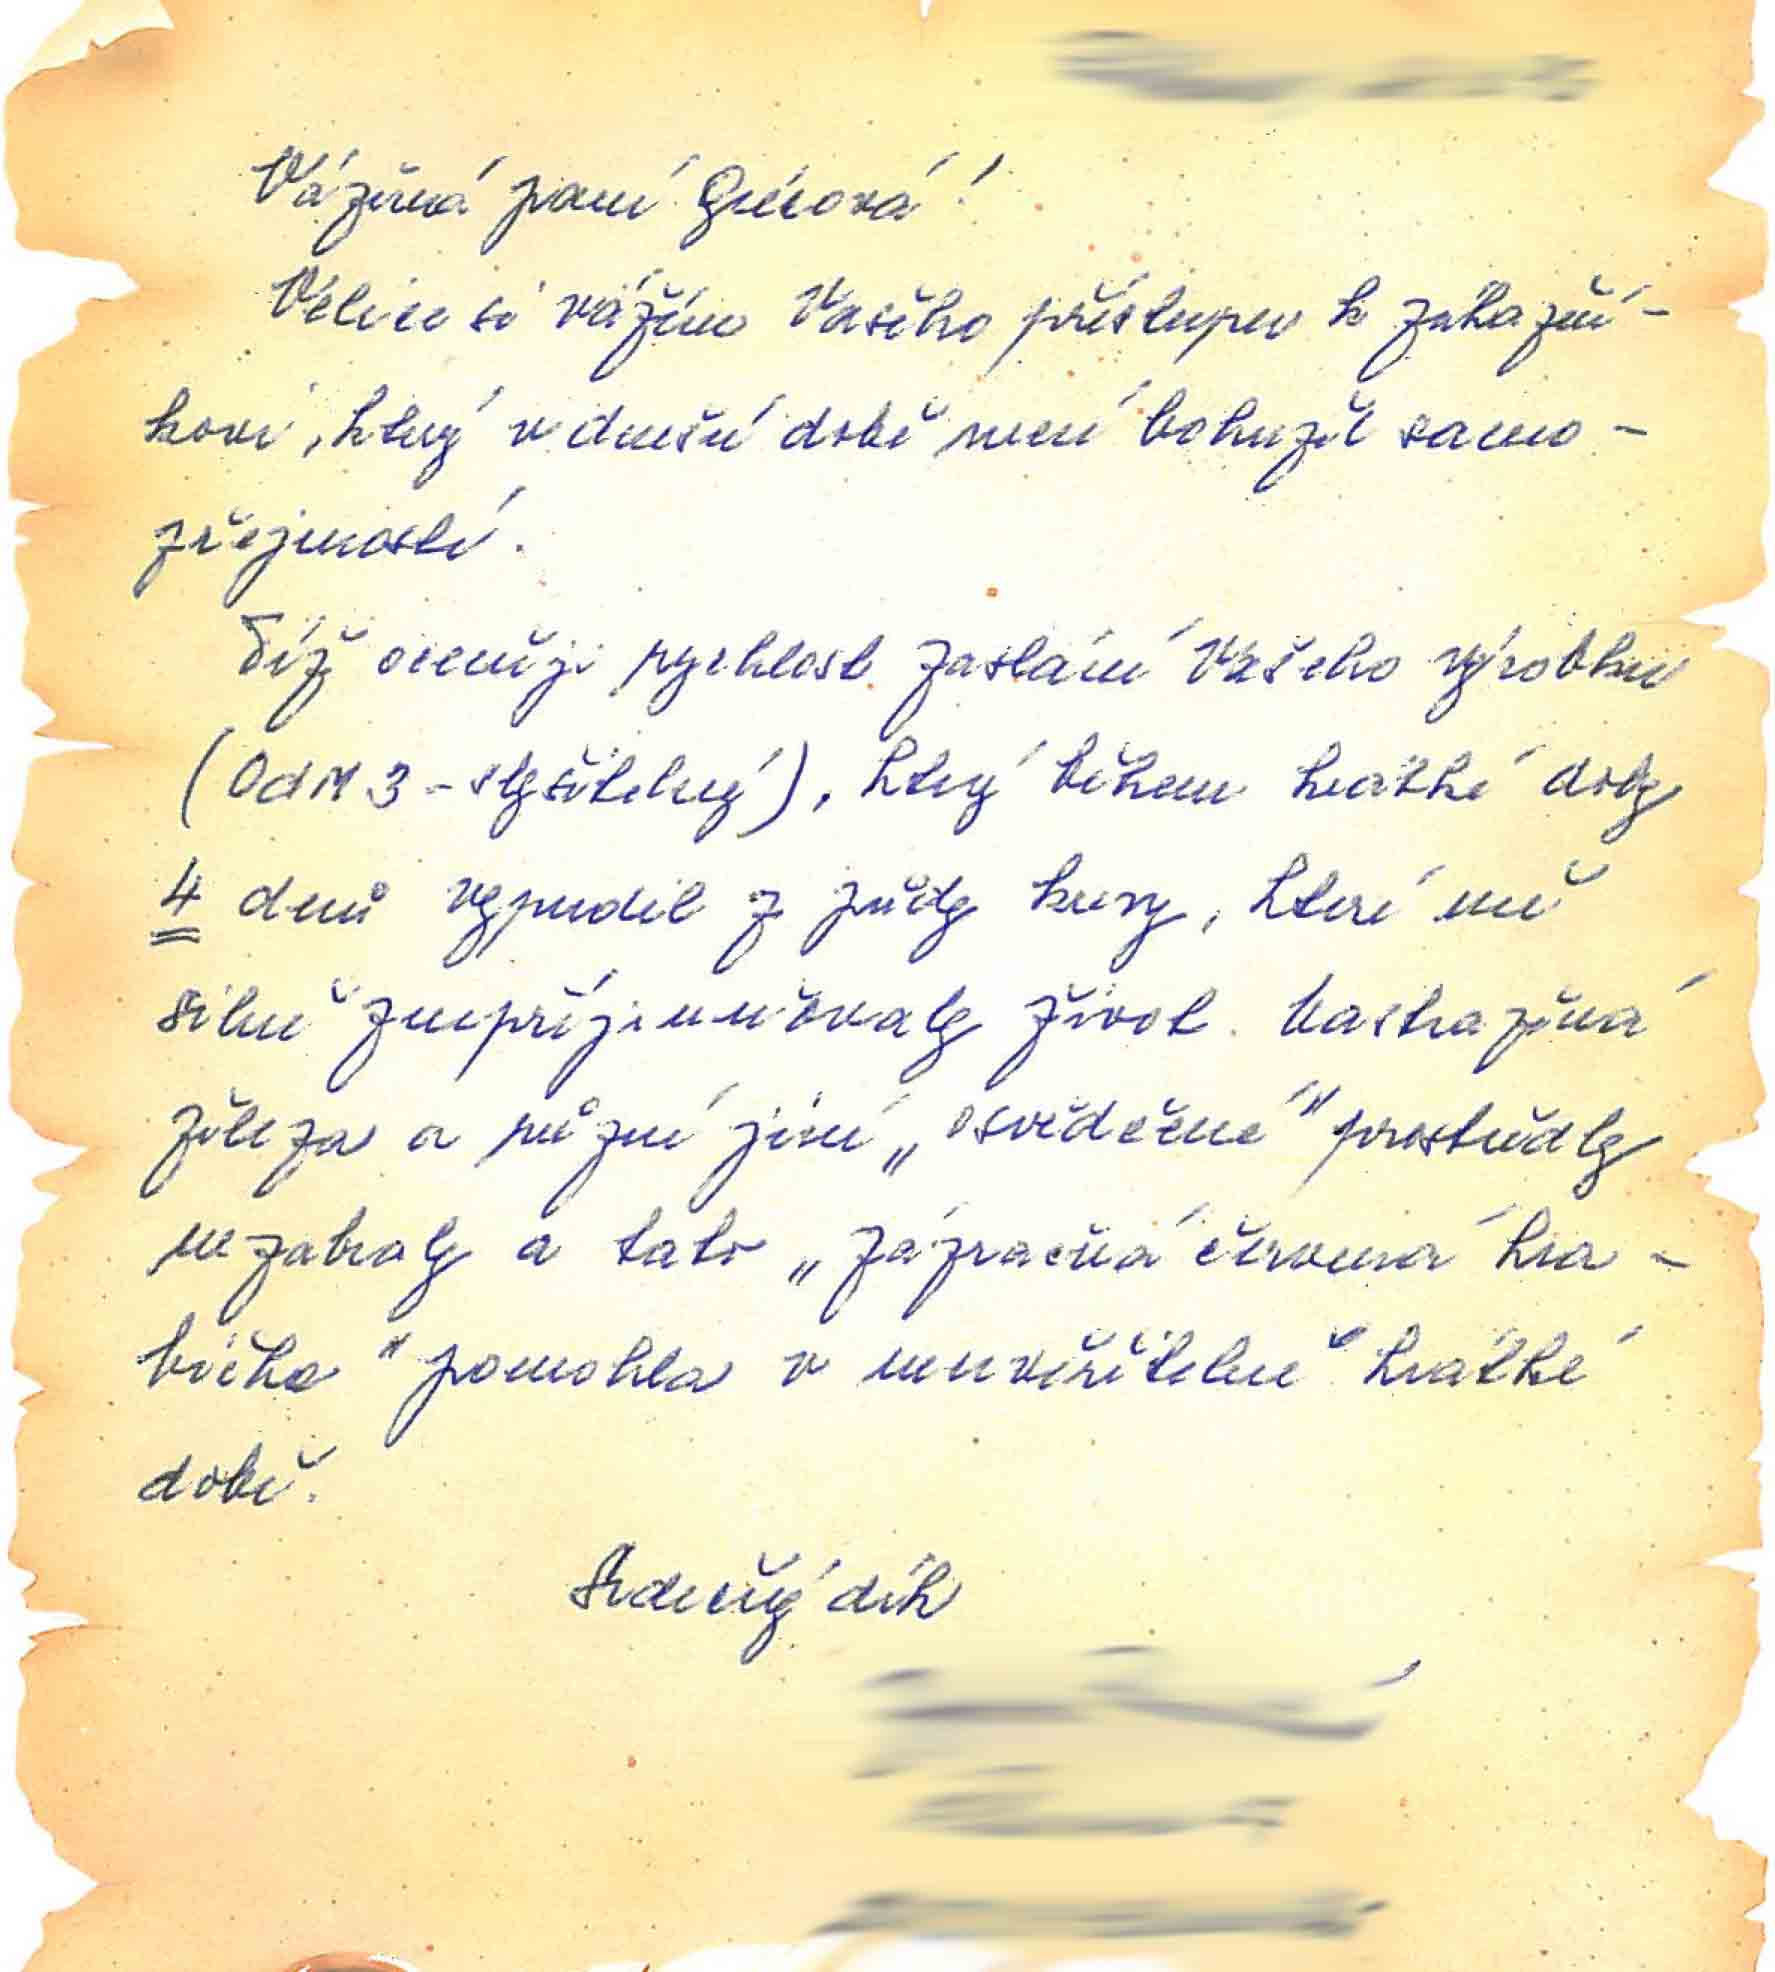 Vážená paní Grécová!
Velice si vážím Vašeho přístupu k zákazní-
kovi, který v dnešní době není bohužel samo-
zřejmostí.
Též oceňuji rychlost zaslání Vašeho výrobku
(OdM 3 - slyšitelný), který během krátké doby
4 dnů vypudil z půdy kuny, které mě
silně znepříjemňovaly život. Nastražená
železa a různé jiné „osvědčené" prostředky
nezabraly a tato „zázračná červená kra-
bička" pomohla v neuvěřitelně krátké
době.
Srdečný dík